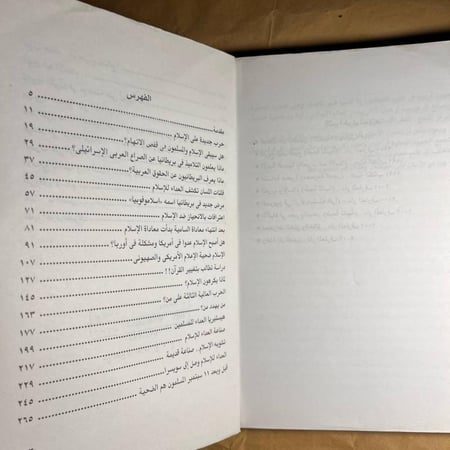 الفهرس
مقدمة ٥
حرب جديدة على الإسلام ١١
هل سيبقى الإسلام والمسلمون فى قفص الاتهام؟ ١٩
ماذا يعلمون التلاميذ فى بريطانيا عن الصراع العربى الإسرائيلى؟ ٢٩
ماذا يعرف البريطانيون عن الحقوق العربية؟ ٣٧
فلتات اللسان تكشف العداء للإسلام ٤٥
مرض جديد فى بريطانيا اسمه «اسلاموفوبيا» ٥٧
اعترافات بالانحياز ضد الإسلام ٧١
بعد انتهاء معاداة السامية بدأت معاداة الإسلام ٨١
هل أصبح الإسلام عدوا فى أمريكا ومشكلة فى أوربا؟ ٩١
الإسلام ضحية الإعلام الأمريكى والصهيونى ١٠٧
دراسة تطالب بتغيير القرآن!! ١٢٧
لماذا يكرهون الإسلام؟ ١٤٥
الحرب العالمية الثالثة على من؟ ١٦٣
من يهدد من؟ ١٧٧
هيستيريا العداء للمسلمين ١٩٩
صناعة العداء للإسلام ٢١٧
تشويه الإسلام.. صناعة قديمة ٢٢٩
العداء للإسلام وصل إلى سويسرا ٢٤٥
قبل وبعد ١١ سبتمبر المسلمون هم الضحية ٢٦٥